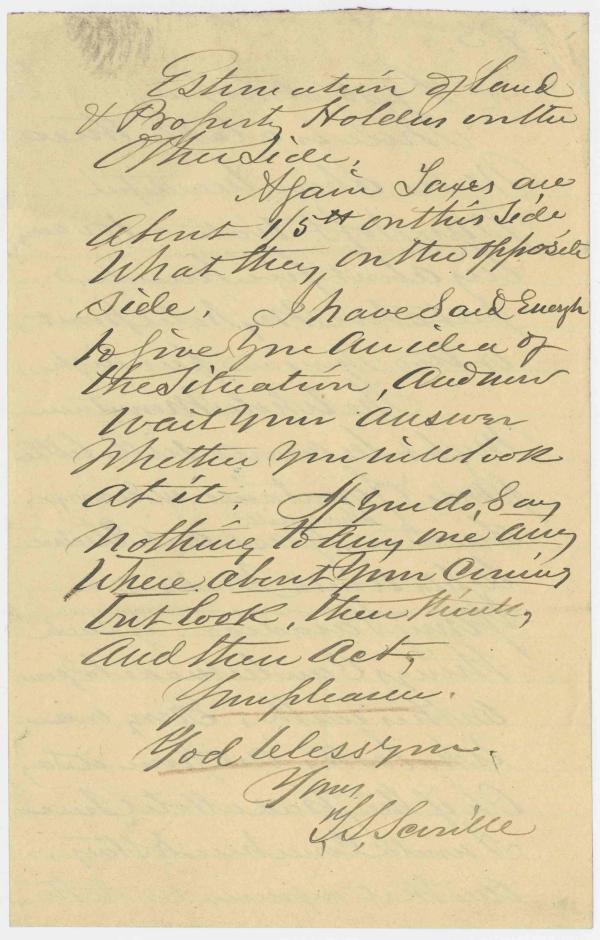 Estimation of Land
& Property Holders on the
Other Side.
Again Taxes are
About 1/5th on this side
What they on the opposite
side. I have Said Enough
to give you An idea of
the Situation, And now
wait your answer
Whether you will look
At it. If you do, Say
nothing to any one any
where about your Coming
but look, then think,
And then Act,
Your pleasure.
God bless you.
Yours
T. S. Scoville